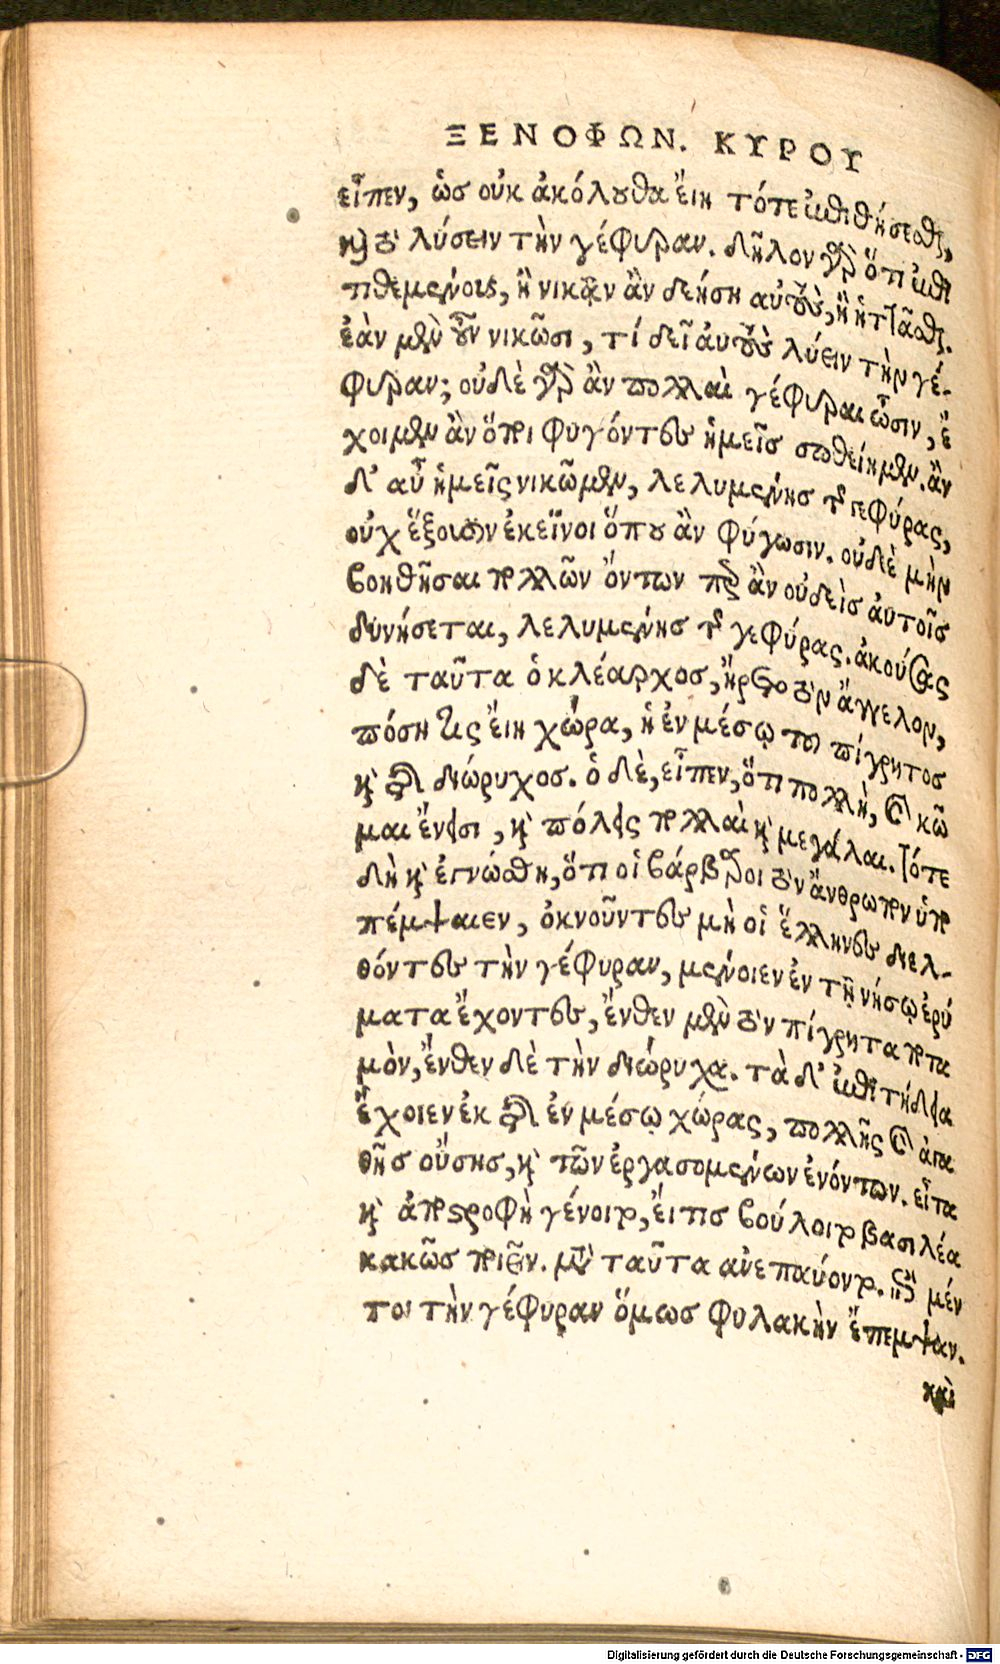 ΞΕΝΟΦΩΝ. ΚΥΡΟΥ
εἶπεν, ὡς οὐκ ἀκόλουθα εἴη τότε ἐπιθήσεσθαι,
καὶ τὸ λύσειν τὴν γέφυραν. δῆλον γὰρ ὅτι ἐπι
τιθεμένους, ἢ νικᾷν ἂν δεήσῃ αὐτοὺς, ἢ ἡττᾶσθαι.
ἐὰν μὲν οὖν νικῶσι, τί δεῖ αὐτοὺς λύειν τὴν γέ-
φυραν; οὐδὲ γὰρ ἂν πολλαὶ γέφυραι ὦσιν, ἔ
χοιμεν ἂν ὅποι φυγόντες ἡμεῖς σωθείημεν. ἂν
δ' αὖ ἡμεῖς νικῶμεν, λελυμένης τῆς γεφύρας,
οὐχ ἕξουσιν ἐκεῖνοι ὅπου ἂν φύγωσιν. οὐδὲ μὴν
βοηθῆσαι πολλῶν ὄντων πέραν οὐδεὶς αὐτοῖς
δυνήσεται, λελυμένης τῆς γεφύρας. ἀκούσας
δὲ ταῦτα ὁ κλέαρχος, ἤρετο τὸν ἄγγελον,
πόση τις εἴη χώρα, ἡ ἐν μέσῳ τοῦ πίγρητος
καὶ τῆς διώρυχος. ὁ δὲ, εἶπεν, ὅτι πολλὴ, καὶ κῶ
μαι ἔνεισι, καὶ πόλεις πολλαὶ καὶ μεγάλαι. τότε
δὴ καὶ ἐγνώσθη, ὅτι οἱ βάρβαροι τὸν ἄνθρωπον ὑπο
πέμψαιεν, ὀκνοῦντες μὴ οἱ ἕλληνες διελ-
θόντες τὴν γέφυραν, μένοιεν ἐν τῇ νήσῳ ἐρύ
ματα ἔχοντες, ἔνθεν μὲν τὸν πίγρητα ποτα
μὸν, ἔνθεν δὲ τὴν διώρυχα. τὰ δ' ἐπιτήδεια
ἔχοιεν ἐκ τῆς ἐν μέσῳ χώρας, πολλῆς καὶ ἀγα
θῆς οὔσης, καὶ τῶν ἐργασομένων ἐνόντων. εἶτα
καὶ ἀποστροφὴ γένοιτο, εἴ τις βούλοιτο βασιλέα
κακῶς ποιεῖν. μετὰ ταῦτα ἀνεπαύοντο. ἐπὶ μέν
τοι τὴν γέφυραν ὅμως φυλακὴν ἔπεμψαν.
καὶ
Digitalisierung gefördert durch die Deutsche Forschungsgemeinschaft - DFG